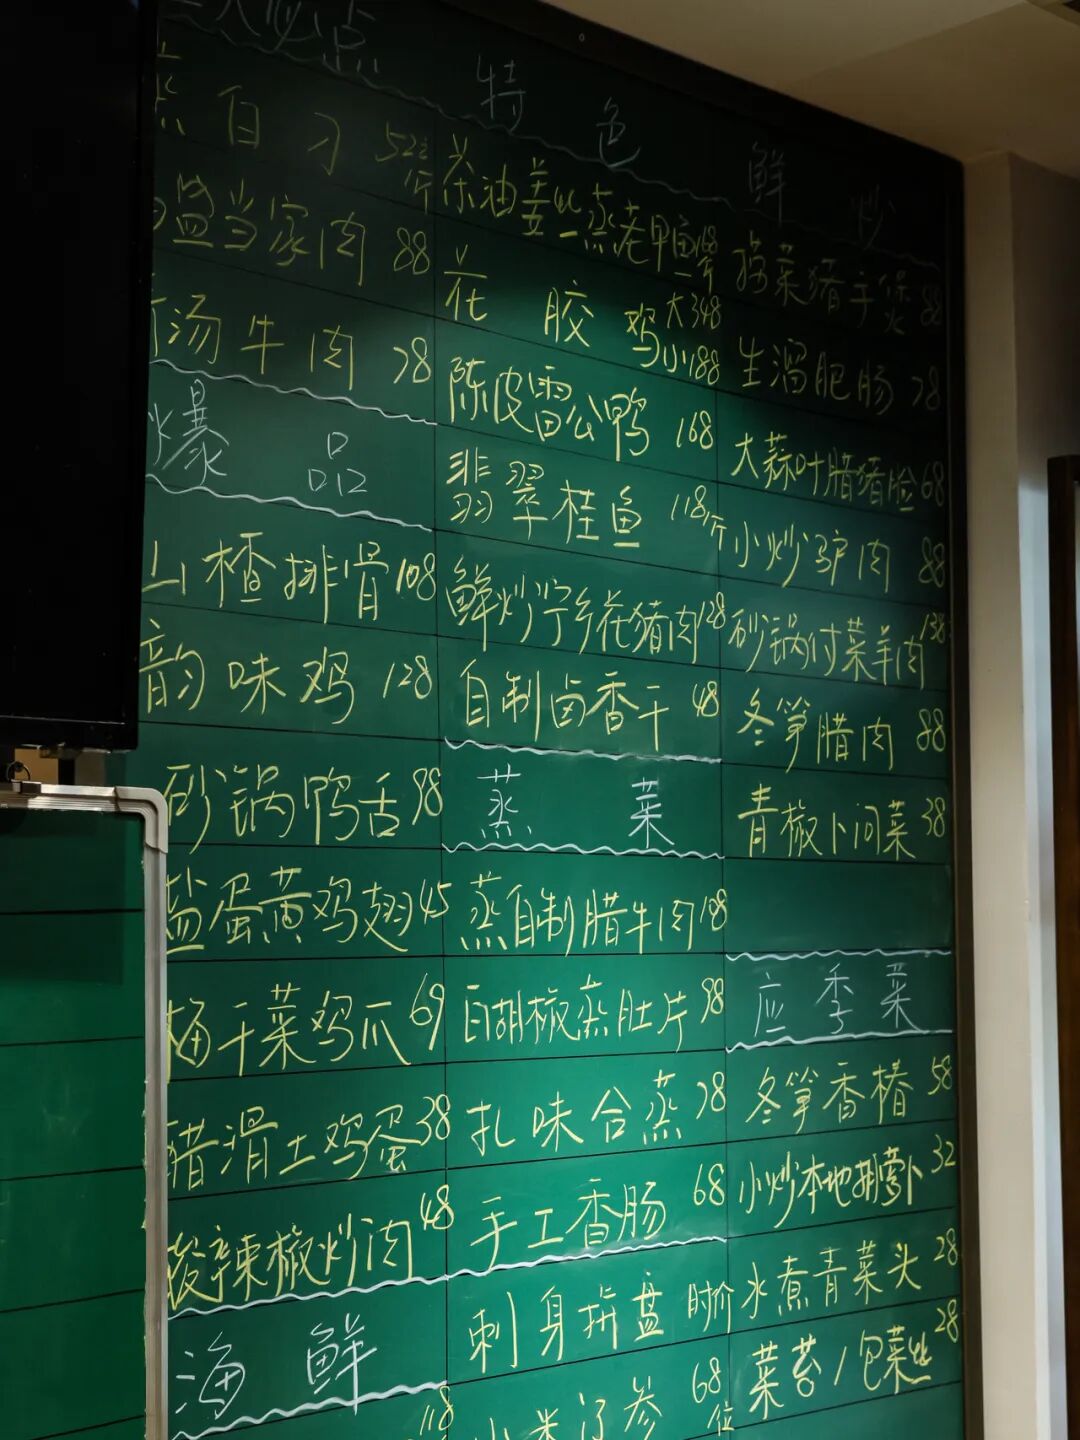 必点
白刁 52元/斤
当家肉 88
汤牛肉 78
爆品
山楂排骨 108
韵味鸡 128
砂锅鸭舌 98
盐蛋黄鸡翅 45
梅干菜鸡爪 69
醋滑土鸡蛋 38
酸辣椒炒肉 48
海鲜
118
特色
茶油姜丝蒸老甲鱼
花胶鸡 大348
小188
陈皮雷公鸭 168
翡翠桂鱼 118/斤
鲜炒宁乡花猪肉 128
自制卤香干 48
蒸菜
蒸自制腊牛肉 108
白胡椒蒸肚片 98
扎味合蒸 78
手工香肠 68
刺身拼盘 时价
小米辽参 68位
鲜炒
菜猪手煲 88
生溜肥肠 78
大蒜叶腊猪脸 68
小炒驴肉 88
砂锅付菜羊肉 138
冬笋腊肉 88
青椒卜问菜 38
应季菜
冬笋香椿 58
小炒本地拼萝卜 32
水煮青菜头 28
菜苔/包菜丝 28